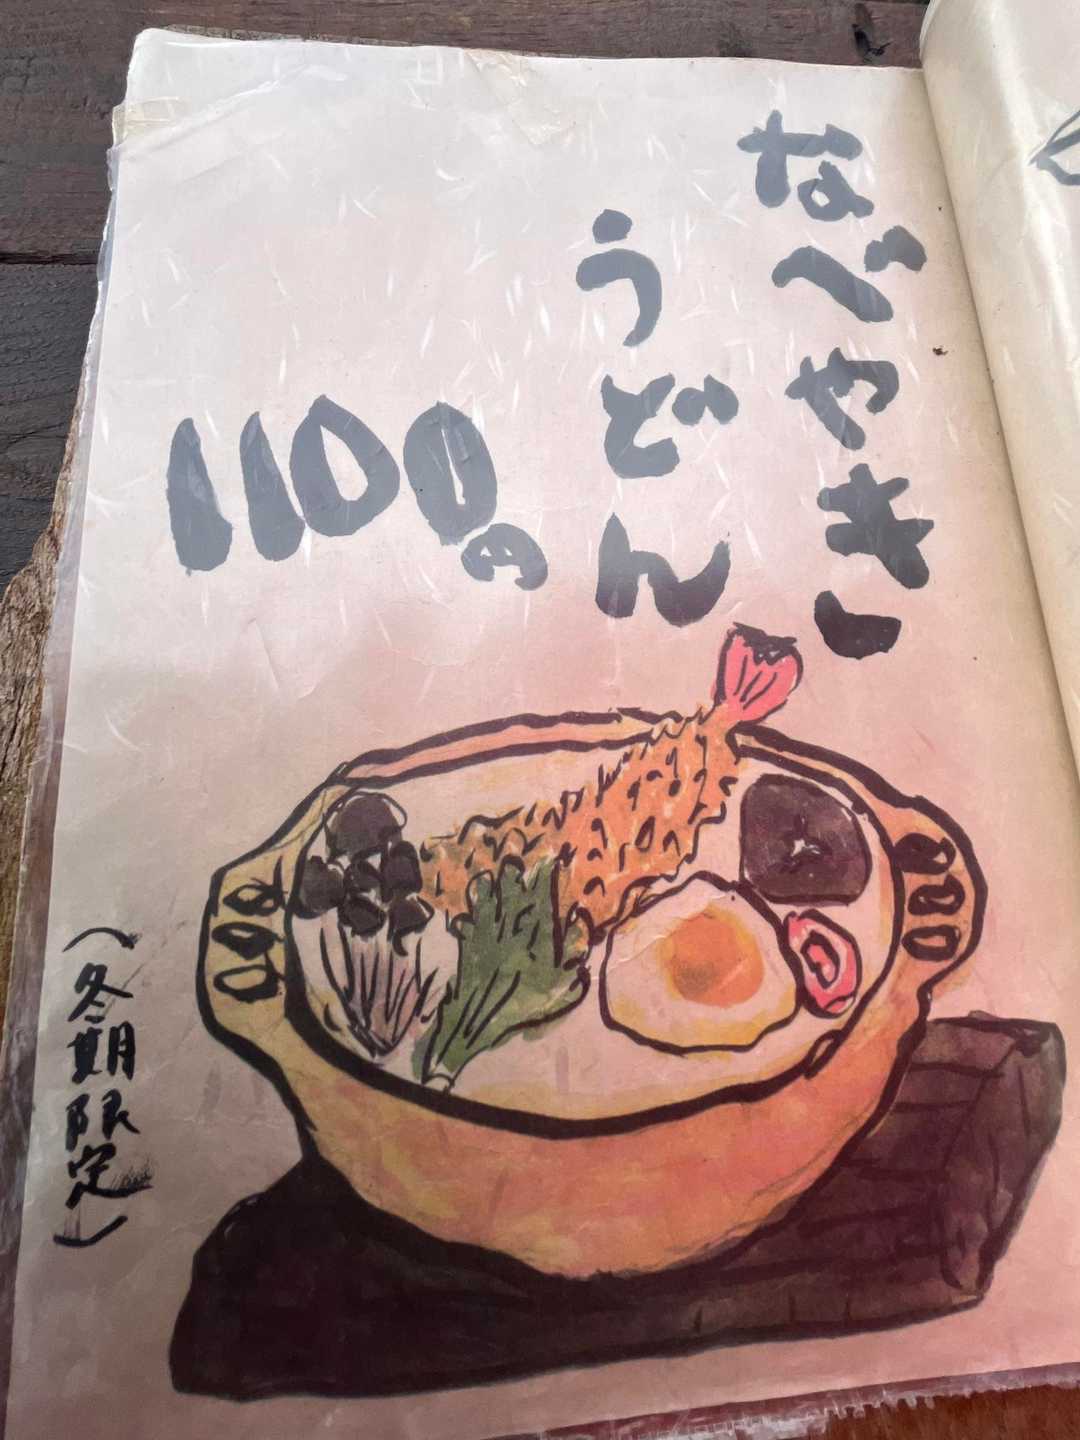 なべやき
うどん
1100円
（冬期限定）